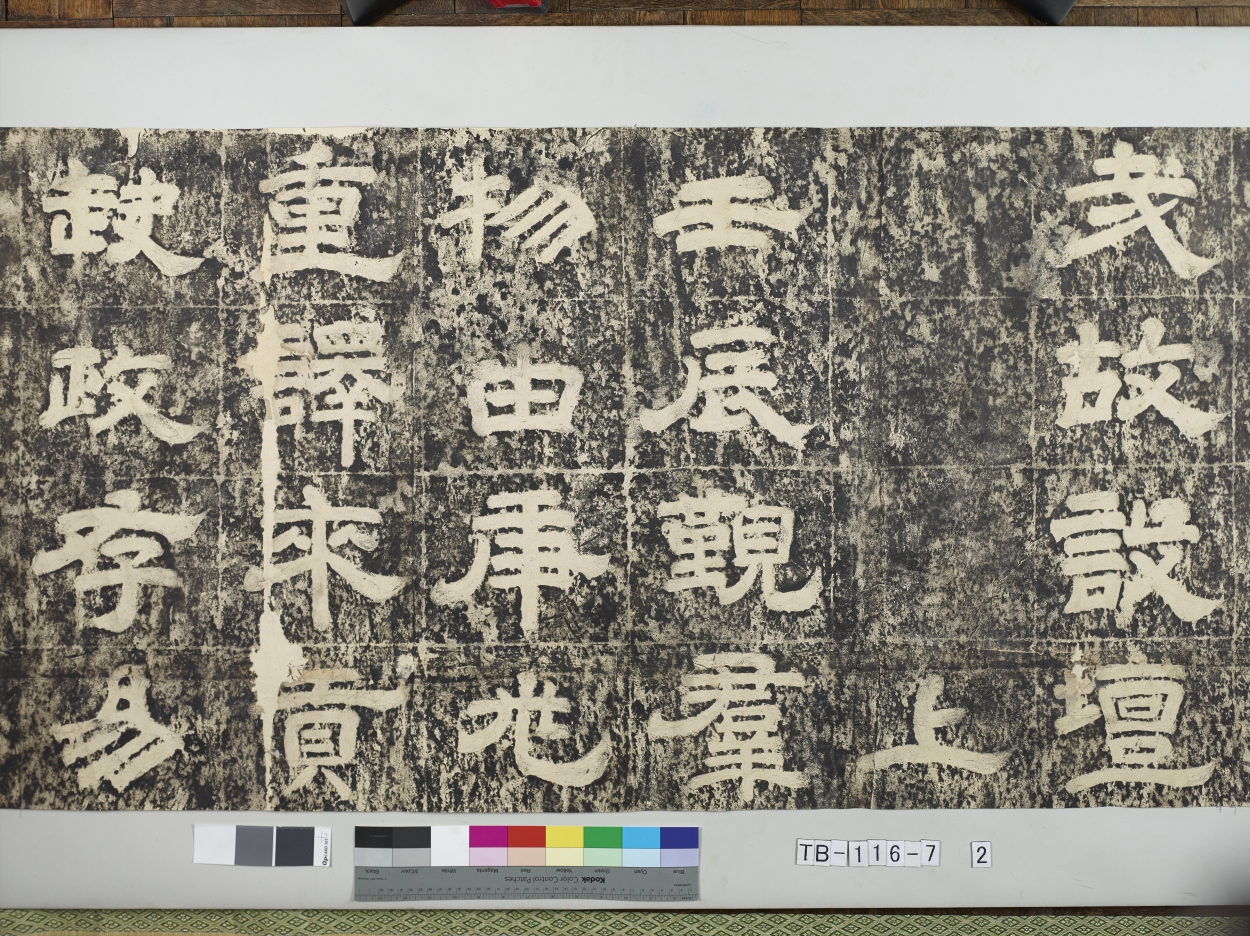 哉故設壇
上
壬辰覲羣
物由庚兆
重譯來貢
缺政存易
TB-116-7 2
Kodak Color Control Patches
Blue Cyan Green Yellow Red Magenta White 3/Color Black